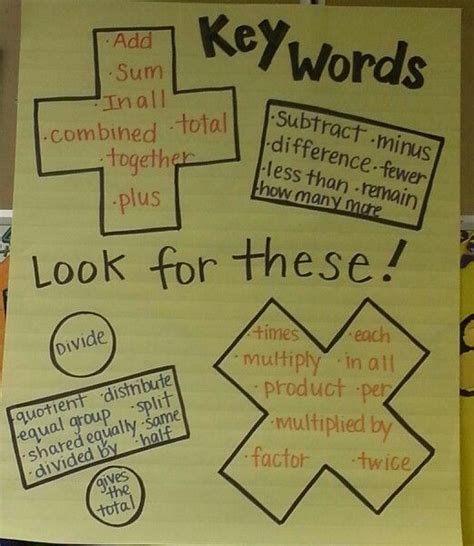 Key Words
· Add
· Sum
· In all
· combined · total
· together
· plus
· subtract · minus
· difference · fewer
· less than · remain
· how many more
Look for these!
Divide
· quotient · distribute
· equal group · split
· shared equally · same
· divided by · half
gives
the
total
· times · each
· multiply · in all
· product · per
· multiplied by
· factor · twice